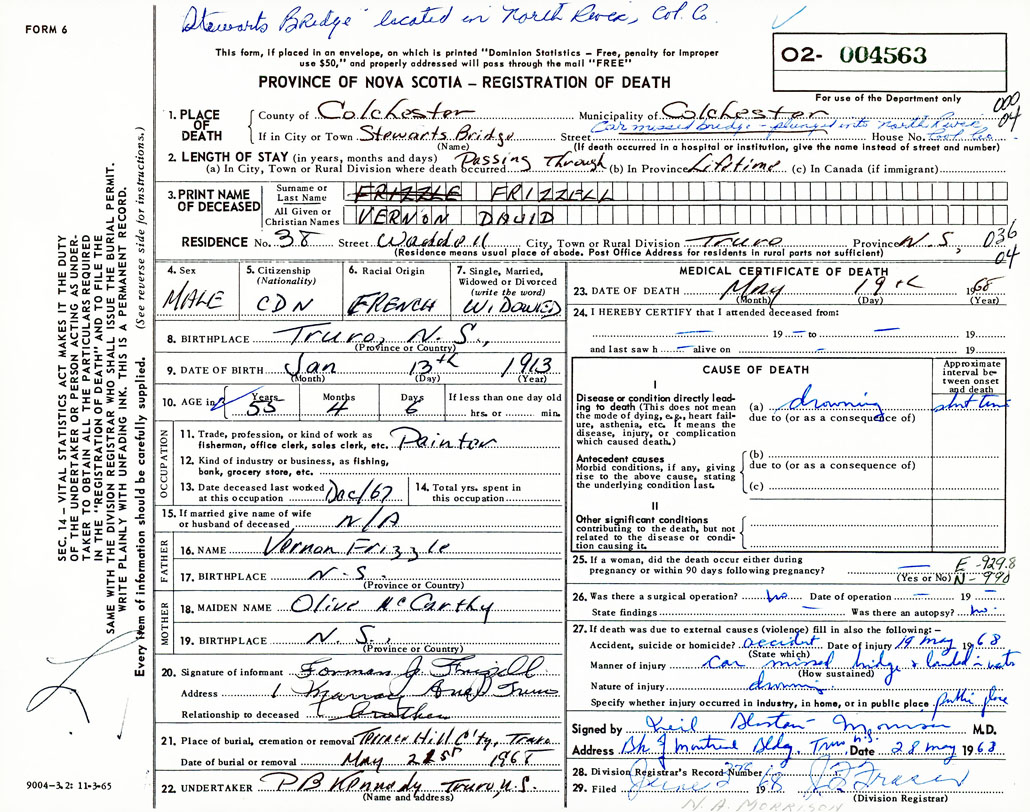 Stewarts Bridge located in North River, Col. Co.
FORM 6
This form, if placed in an envelope, on which is printed "Dominion Statistics – Free, penalty for improper
use $50," and properly addressed will pass through the mail "FREE"
PROVINCE OF NOVA SCOTIA – REGISTRATION OF DEATH
O2- 004563
For use of the Department only
000
04
1. PLACE OF DEATH
County of Colchester Municipality of Colchester
car missed bridge - plunged into North River
If in City or Town Stewarts Bridge Street House No. Col. Co.
(Name) (If death occurred in a hospital or institution, give the name instead of street and number)
2. LENGTH OF STAY (in years, months and days)
(a) In City, Town or Rural Division where death occurred Passing Through (b) In Province Lifetime (c) In Canada (if immigrant)
3. PRINT NAME OF DECEASED
Surname or Last Name FRIZZLE FRIZZELL
All Given or Christian Names VERNON DAVID
RESIDENCE No. 38 Street Waddell City, Town or Rural Division Truro Province N.S,
036
04
(Residence means usual place of abode. Post Office Address for residents in rural parts not sufficient)
4. Sex MALE
5. Citizenship (Nationality) CDN
6. Racial Origin FRENCH
7. Single, Married, Widowed or Divorced (write the word) WIDOWED
8. BIRTHPLACE Truro, N.S.,
(Province or Country)
9. DATE OF BIRTH Jan 13th 1913
(Month) (Day) (Year)
10. AGE in Years 55 Months 4 Days 6 If less than one day old hrs. or min.
OCCUPATION
11. Trade, profession, or kind of work as fisherman, office clerk, sales clerk, etc. Painter
12. Kind of industry or business, as fishing, bank, grocery store, etc.
13. Date deceased last worked at this occupation Dec/67
14. Total yrs. spent in this occupation
15. If married give name of wife or husband of deceased N/A
FATHER
16. NAME Vernon Frizzle
17. BIRTHPLACE N.S.
(Province or Country)
MOTHER
18. MAIDEN NAME Olive McCarthy
19. BIRTHPLACE N.S.,
(Province or Country)
20. Signature of informant Forman J. Frizzell
Address 1 Murray Truro
Relationship to deceased brother
21. Place of burial, cremation or removal Terrace Hill City, Truro
Date of burial or removal May 21st 1968
22. UNDERTAKER P B Kennedy Truro, N.S.
(Name and address)
MEDICAL CERTIFICATE OF DEATH
23. DATE OF DEATH May 19th 1968
(Month) (Day) (Year)
24. I HEREBY CERTIFY that I attended deceased from:
19 – to 19
and last saw h alive on 19
CAUSE OF DEATH
Approximate interval between onset and death
I
Disease or condition directly leading to death (This does not mean the mode of dying, e.g., heart failure, asthenia, etc. It means the disease, injury, or complication which caused death.)
(a) drowning short time
due to (or as a consequence of)
Antecedent causes
Morbid conditions, if any, giving rise to the above cause, stating the underlying condition last.
(b)
due to (or as a consequence of)
(c)
II
Other significant conditions contributing to the death, but not related to the disease or condition causing it.
25. If a woman, did the death occur either during pregnancy or within 90 days following pregnancy?
(Yes or No)
E -929.8
N - 990
26. Was there a surgical operation? No Date of operation – 19 –
State findings – Was there an autopsy? No.
27. If death was due to external causes (violence) fill in also the following:–
Accident, suicide or homicide? accident Date of injury 19 May 1968
(State which)
Manner of injury car missed bridge & landed in water
(How sustained)
Nature of injury drowning
Specify whether injury occurred in industry, in home, or in public place public place
Signed by Neil Morrison M.D.
Address Bk of Montreal Bldg, Truro N.S. Date 28 May 1968
28. Division Registrar's Record Number
29. Filed June 2 1968 J Fraser
(Division Registrar)
N. A. MORRISON
SEC. 14 – VITAL STATISTICS ACT MAKES IT THE DUTY
OF THE UNDERTAKER OR PERSON ACTING AS UNDER-
TAKER TO OBTAIN ALL THE PARTICULARS REQUIRED
IN THE "REGISTRATION OF DEATH" AND FILE THE
SAME WITH THE DIVISION REGISTRAR WHO SHALL ISSUE THE BURIAL PERMIT.
WRITE PLAINLY WITH UNFADING INK. THIS IS A PERMANENT RECORD.
Every item of information should be carefully supplied. (See reverse side for instructions.)
9004-3.2: 11-3-65